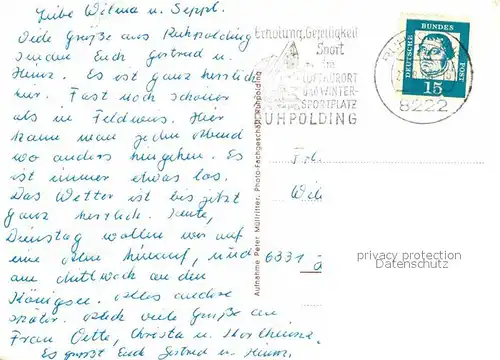 Liebe Wilma u. Seppl.
Viele Grüße aus Ruhpolding
senden Euch Gertrud u.
Heinz. Es ist ganz herrlich
hier. Fast noch schöner
als in Feldwens. Hier
kann man jeden Abend
wo anders hingehen. Es
ist immer etwas los.
Das Wetter ist bis jetzt
ganz herrlich. Heute,
Dienstag wollen wir auf
eine Alm hinauf, und
am Mittwoch an den
Königsee. Alles andere
später. Auch viele Grüße an
Frau Oette, Christa u. Karlheinz.
Es grüßt Euch Gertrud u. Heinz.
Erholung, Geselligkeit
Sport
im
LUFTKURORT
UND WINTER-
SPORTPLATZ
RUHPOLDING
DEUTSCHE
BUNDES
POST
15
8222
Aufnahme Peter Müllritter, Photo-Fachgeschäft Ruhpolding
Frl.
6331
privacy protection
Datenschutz